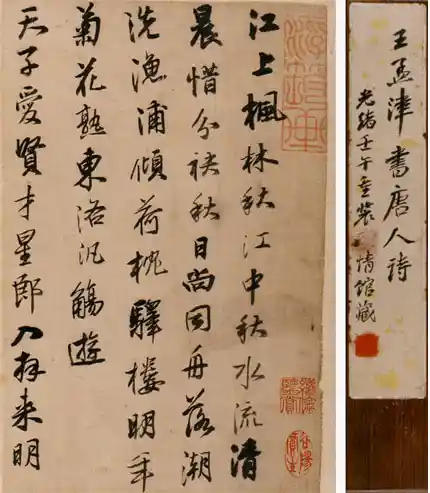 江上楓林秋江中秋水流清
晨惜分袂秋日尚同舟落潮
洗漁浦傾荷枕驛樓明年
菊花熟東洛汎觴遊
天子愛賢才星郎入拜来明
王孟津書唐人詩
光緒壬午重裝 情館藏